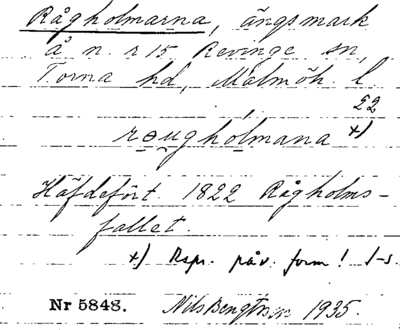 Rågholmarna, ängsmark
å n. r 15 Revinge sn,
Torna hd, Malmöh. l
22
rougholmana x)
Häfdefört. 1822 Rågholms-
fallet.
x) Rspr. påv. form! I-s.
Nr 5848. Nils Bengtsson 1935.